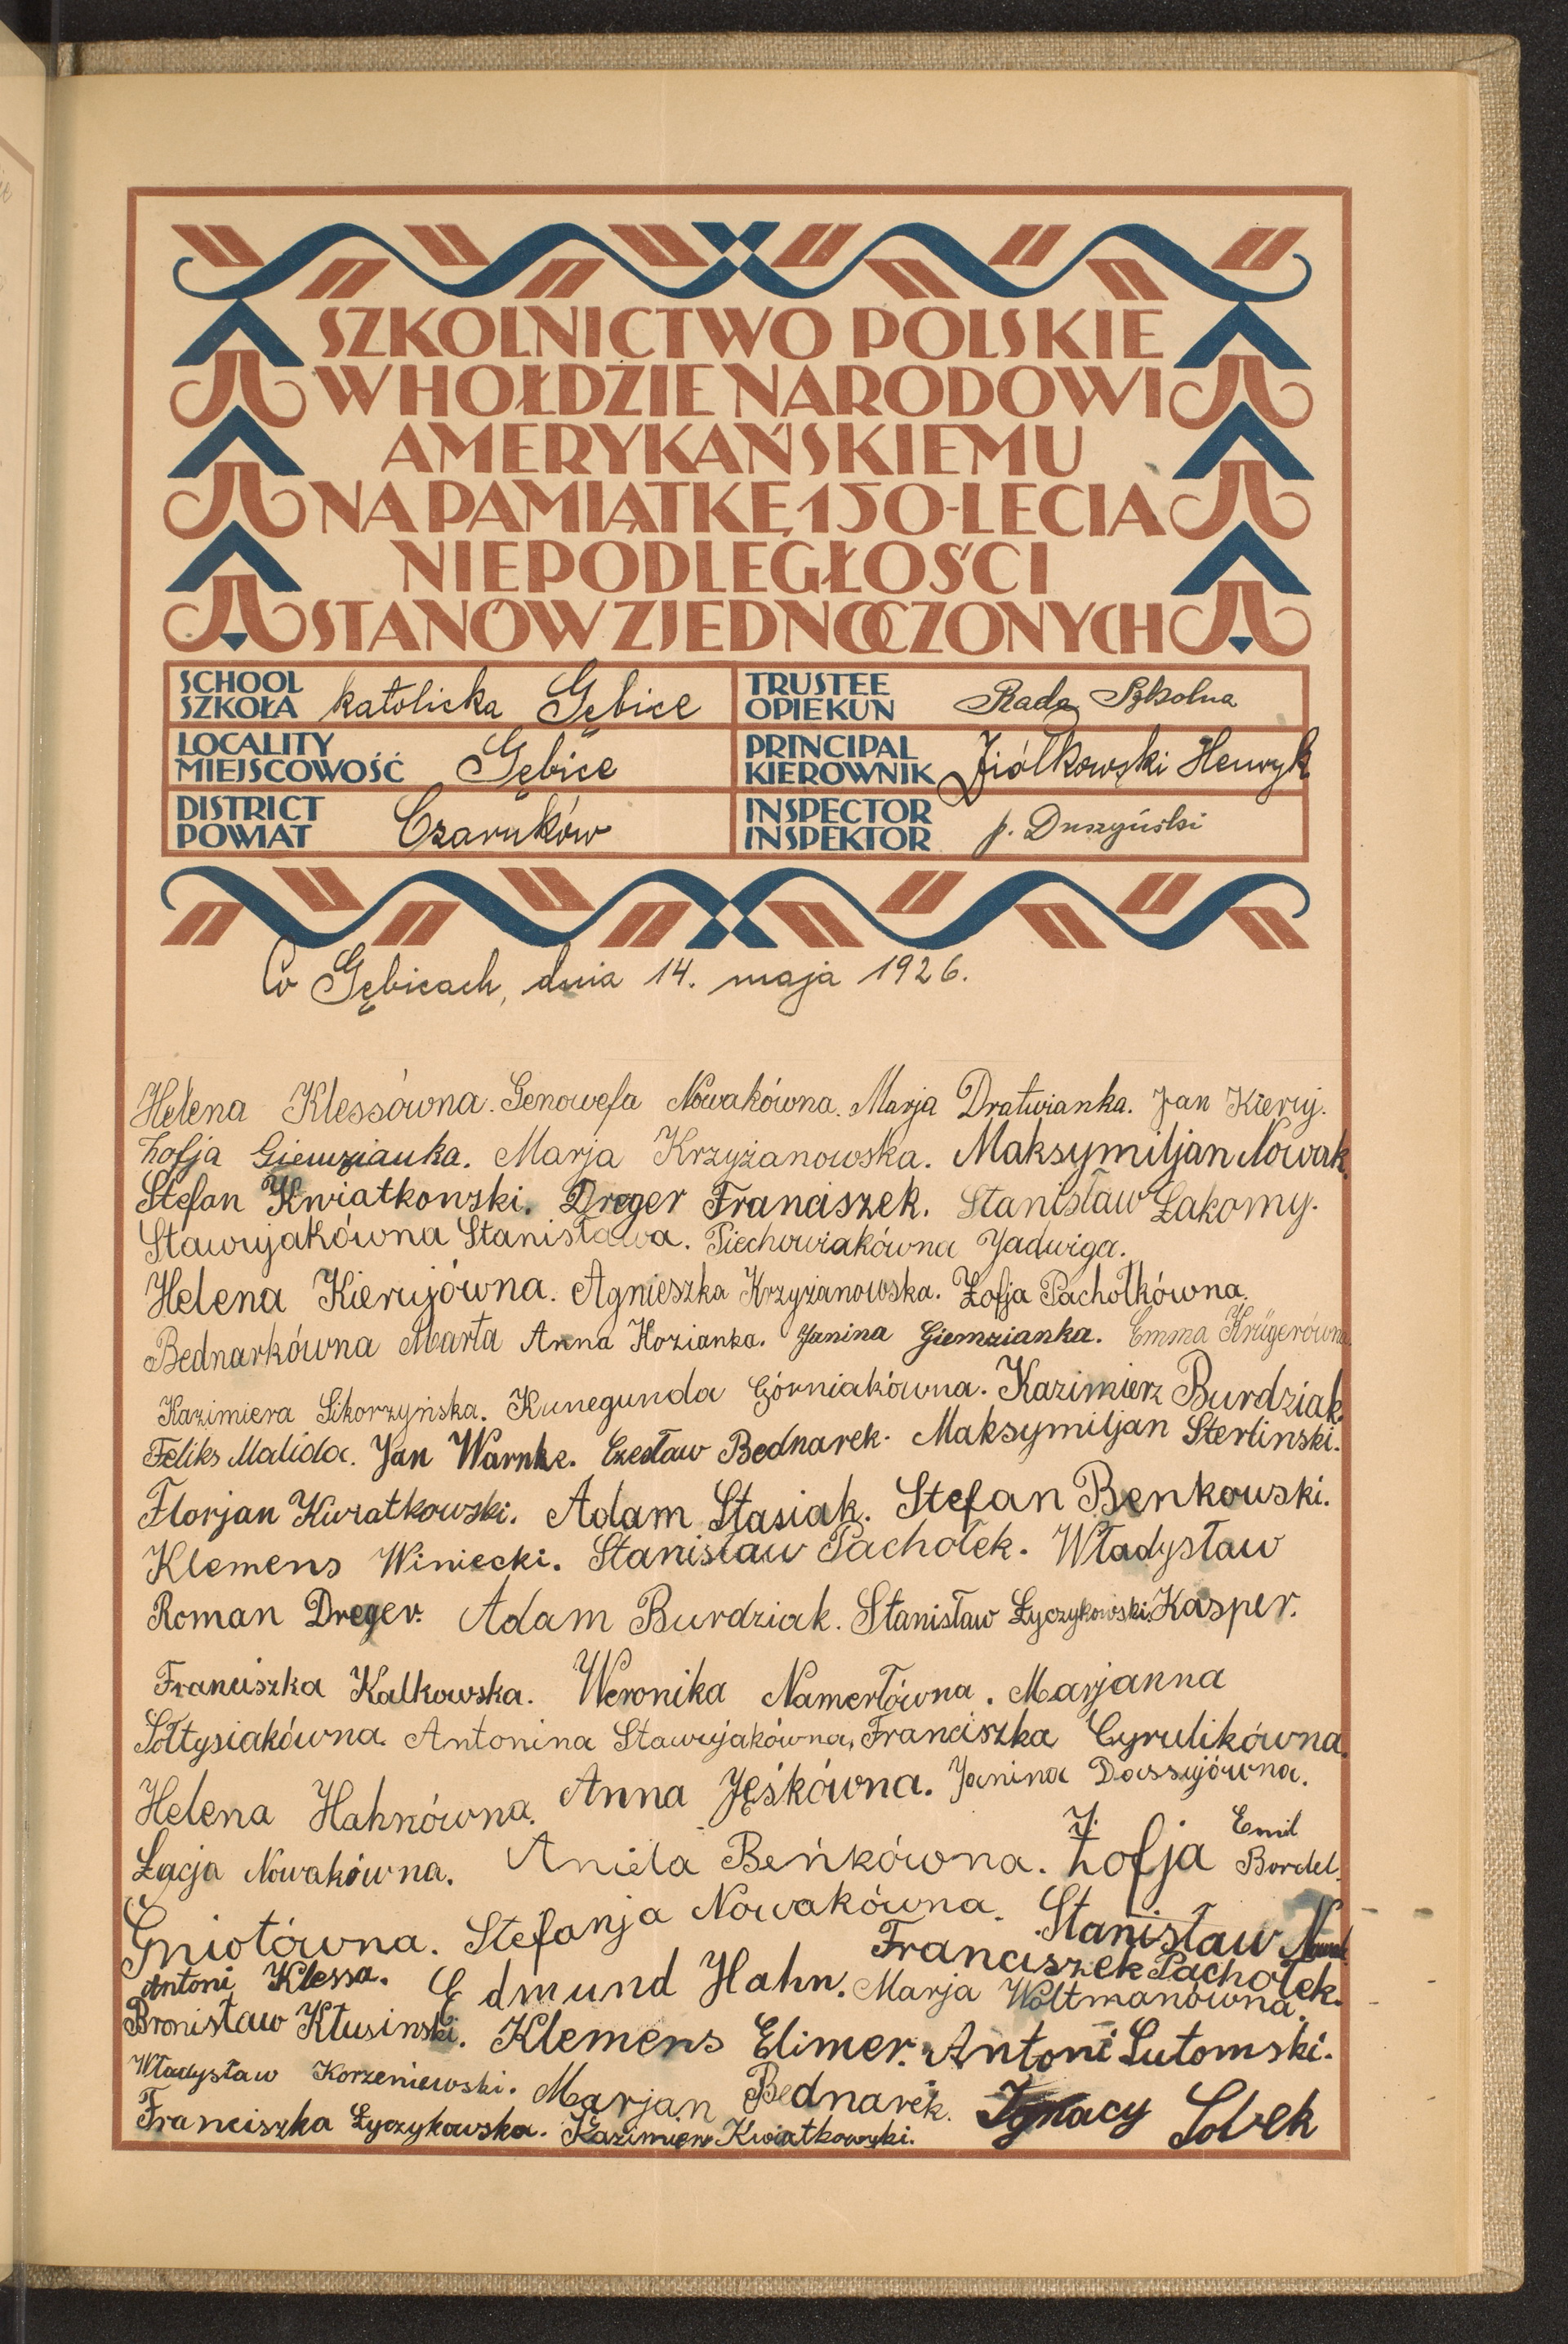 SZKOLNICTWO POLSKIE
W HOŁDZIE NARODOWI
AMERYKAŃSKIEMU
NA PAMIĄTKĘ 150-LECIA
NIEPODLEGŁOŚCI
STANÓW ZJEDNOCZONYCH
SCHOOL
SZKOŁA
katolicka Gębice
TRUSTEE
OPIEKUN
Rada Szkolna
LOCALITY
MIEJSCOWOŚĆ
Gębice
PRINCIPAL
KIEROWNIK
Ziółkowski Henryk
DISTRICT
POWIAT
Czarnków
INSPECTOR
INSPEKTOR
p. Duszyński
W Gębicach, dnia 14. maja 1926.
Helena Klessówna. Genowefa Nowakówna. Marja Dratwianka. Jan Kieruj.
Zofja Giemzianka. Marja Krzyżanowska. Maksymiljan Nowak.
Stefan Kwiatkowski. Dreger Franciszek. Stanisław Łakomy.
Stawujakówna Stanisława. Piechowiakówna Jadwiga.
Helena Kierujówna. Agnieszka Krzyżanowska. Zofja Pachołkówna.
Bednarkówna Marta Anna Kozianka. Janina Giemzianka. Emma Krügerówna
Kazimiera Sikorzyńska. Kunegunda Górniakówna. Kazimierz Burdziak.
Feliks Malida. Jan Warnke. Czesław Bednarek. Maksymiljan Sterlinski.
Florjan Kwiatkowski. Adam Stasiak. Stefan Benkowski.
Klemens Winiecki. Stanisław Pachołek. Władysław
Roman Dreger. Adam Burdziak. Stanisław Łyczykowski. Kasper.
Franciszka Kalkowska. Weronika Namertówna. Marjanna
Sołtysiakówna. Antonina Stawujakówna, Franciszka Cyrulikówna.
Helena Hahnówna. Anna Jęśkówna. Janina Dassujówna.
Łucja Nowakówna. Aniela Beńkówna. Zofja Emil Bordel.
Gniotówna. Stefanja Nowakówna. Stanisław
Antoni Klessa. Edmund Hahn. Franciszek Pachołek.
Marja Woltmanówna.
Bronisław Kłusinski. Klemens Elimer. Antoni Lutomski.
Władysław Korzeniewski. Marjan Bednarek. Ignacy Sobek
Franciszka Łyczykowska. Kazimierz Kwiatkowski.